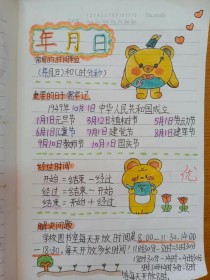 年月日
常用的时间单位
(年月日)和(时分秒)
重要的日子需牢记
1949年10月1日中华人民共和国成立
1月1日元旦节 3月12日植树节 5月1日劳动节
6月1日儿童节 7月1日建党节 8月1日建军节
9月10日教师节 10月1日国庆节
经过时间
开始=结束-经过
经过=结束-开始
结束=开始+经过
优
解决问题
学校图书室每天开放时间是8:00-11:30,14:00
-18:30,每天开放多长时间?